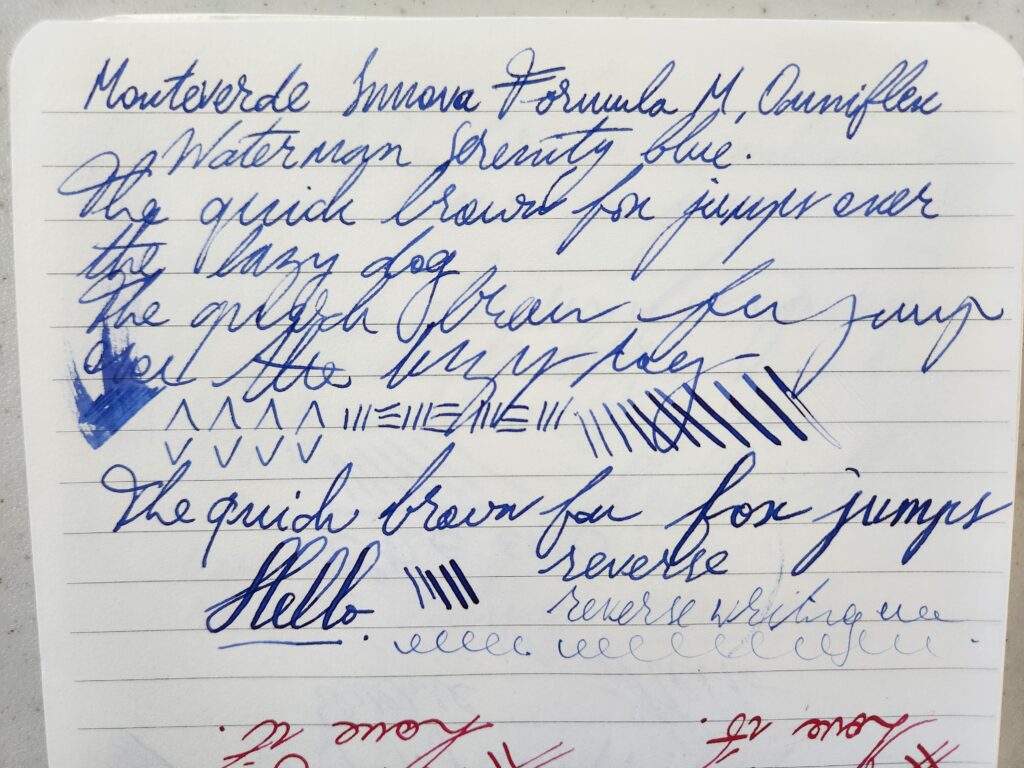 Monteverde Innova Formula M, Omniflex
Waterman Serenity blue.
The quick brown fox jumps over
the lazy dog
The quick brown fox jump
over the lazy dog
The quick brown fox fox jumps
Hello. reverse
reverse writing
love it. love it.